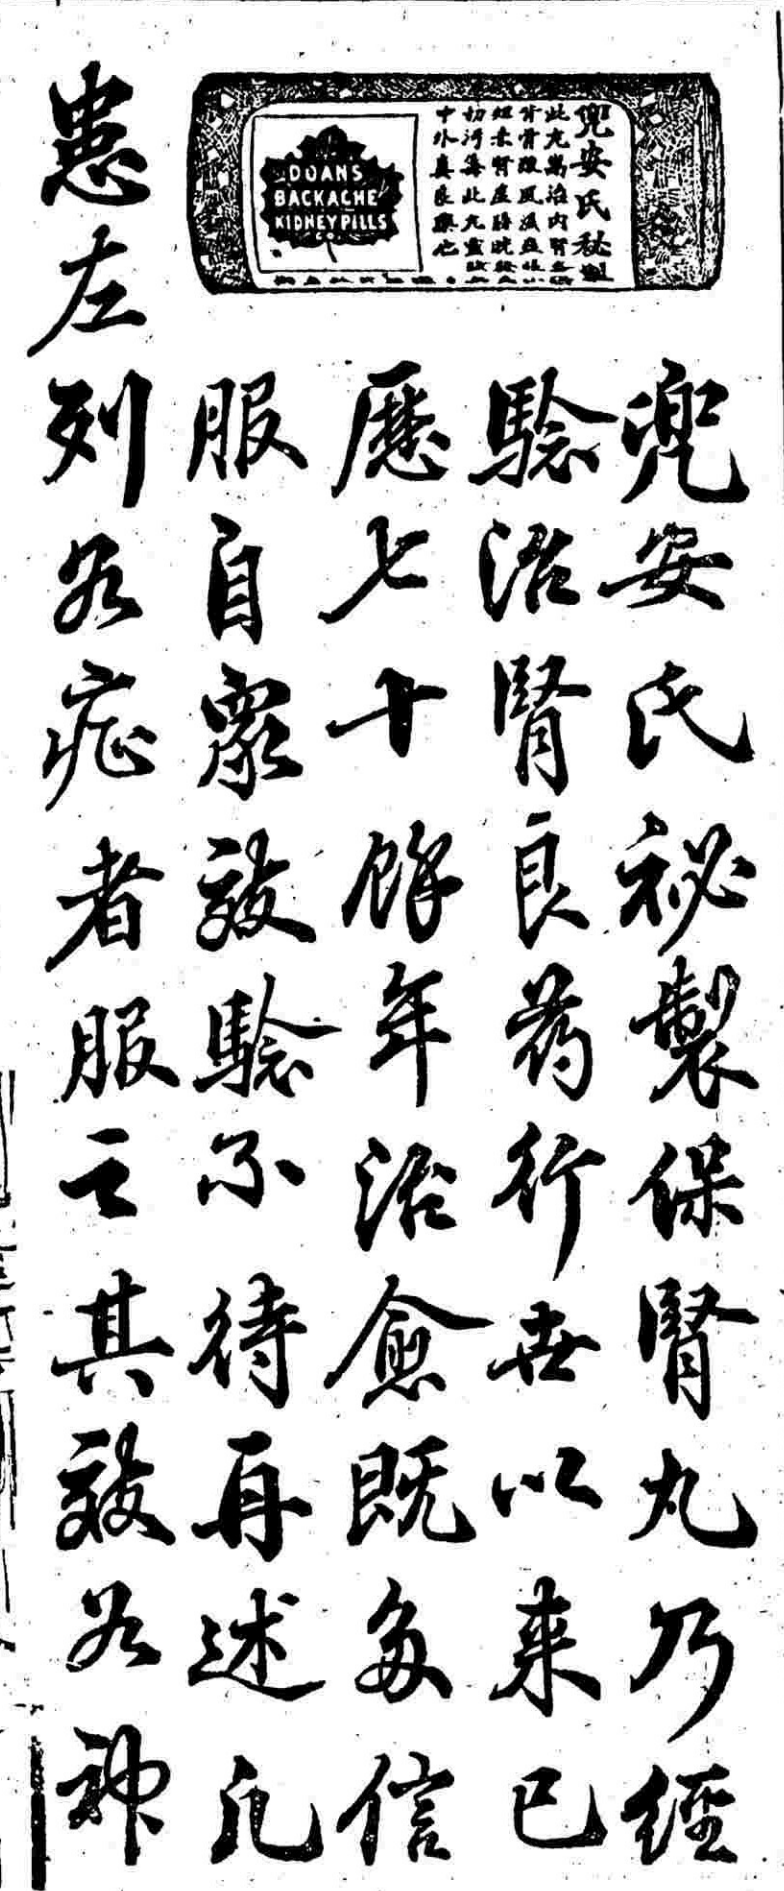 DOAN'S
BACKACHE
KIDNEY PILLS
CO.
兜安氏秘製
此丸專治內腎
中外真良藥也
兜安氏祕製保腎丸乃經
騐治腎良药行世以来已
歷七十餘年治愈既多信
服自衆效騐不待再述凡
患左列各症者服之其效如神